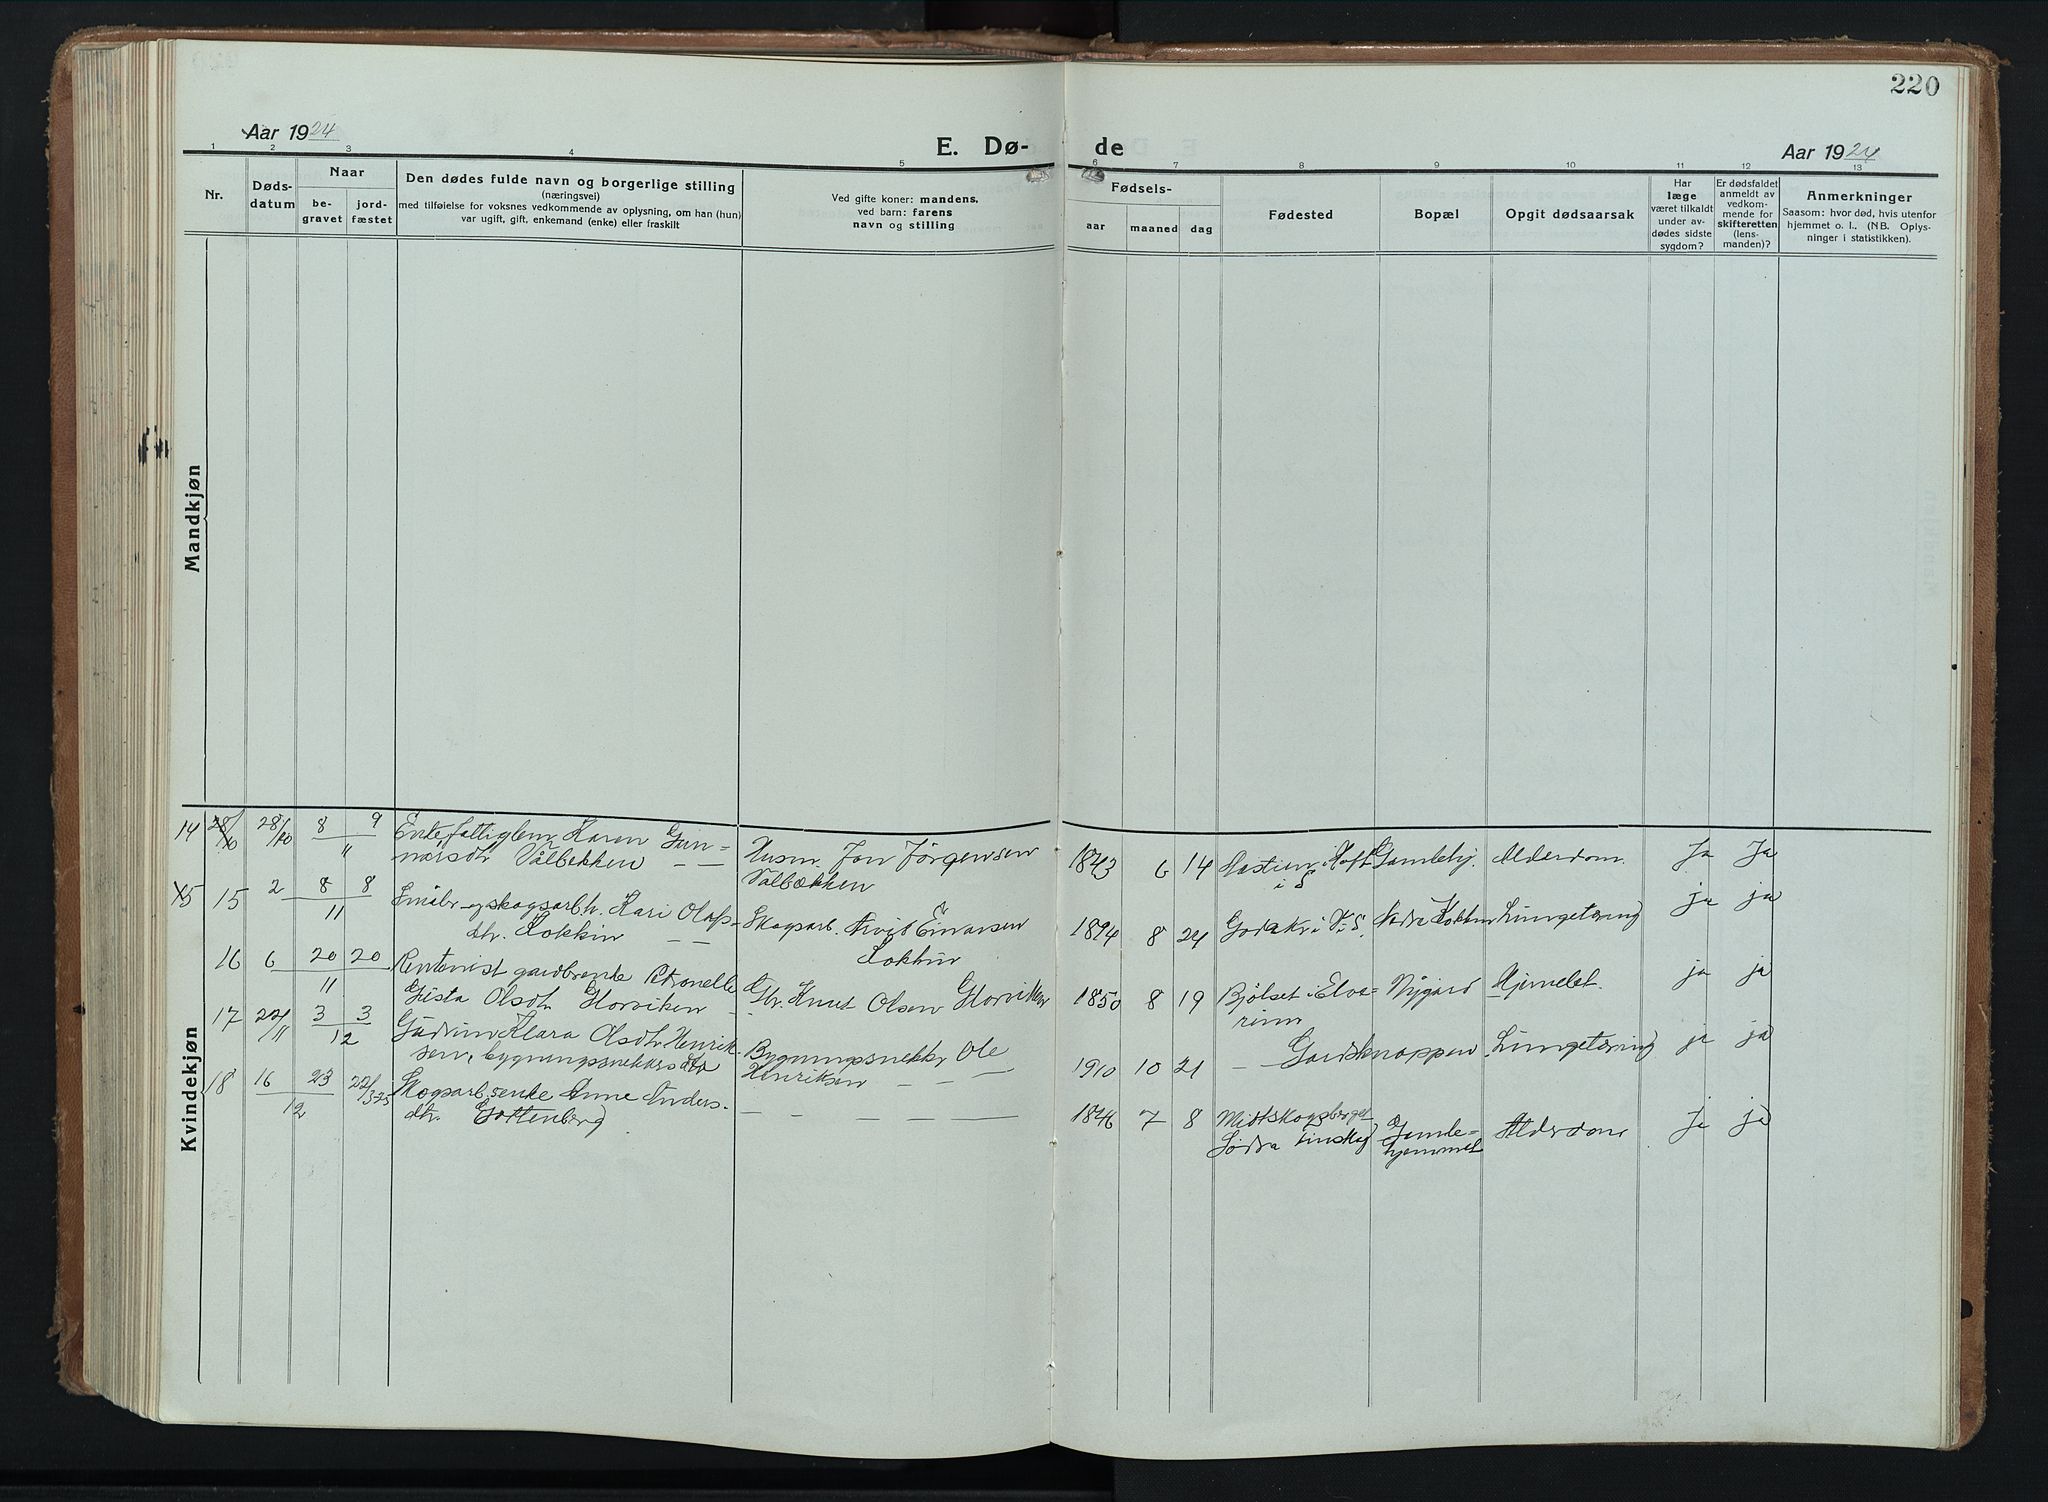 220
Aar 1924
E. Dø-
de
Aar 1924
1 2 3 4 5 6 7 8 9 10 11 12 13
Nr.
Døds-
datum
Naar
be-
gravet
jord-
fæstet
Den dødes fulde navn og borgerlige stilling
(næringsvei)
med tilføielse for voksnes vedkommende av oplysning, om han (hun)
var ugift, gift, enkemand (enke) eller fraskilt
Ved gifte koner: mandens,
ved barn: farens
navn og stilling
Fødsels-
aar
maaned
dag
Fødested
Bopæl
Opgit dødsaarsak
Har
læge
været tilkaldt
under av-
dødes sidste
sygdom?
Er dødsfaldet
anmeldt av
vedkom-
mende for
skifteretten
(lens-
manden)?
Anmerkninger
Saasom: hvor død, hvis utenfor
hjemmet o. l.. (NB. Oplys-
ninger i statistikken).
Mandkjøn
Kvindekjøn
14 28/10 28/10 8 9
11
Enke, fattiglem Karen Gun-
narsdtr Vålbekken — —
Husm. Jon Jörgensen
Valbækken
1843 6 14 i Gamlehj. Alderdom. Ja Ja
i S
15 15 2 8 8
11
Småbr. og skogsarbh. Kari Olafs-
dtr. Kokkin — —
Skogsarb. Arvid Einarsen
Kokkin
1894 8 24 i V. S. Nedre Kokkin Lungetæring ja ja
16 6 20 20
11
Rentenist gaardbrenke Petronelle
Gusta Olsdtr Horviken -
Gbr. Knut Olsen Horviken
1850 8 19 Bjölset i Elve- Nygard Hjernebet. ja ja
rum
17 22/11 3 3
12
Gudrun Klara Olsdtr. Henrik-
sen, bygningssnekkersdtr
Bygningssnekkr Ole
Henriksen — — —
1910 10 21 — Gardsknappen Lungetæring ja ja
18 16 23 22/3 25
12
Skogsarb.senke Anne Anders-
dtr. Gottenberg
— — — —
1846 7 8 Midtskogsberget Gamle- Alderdom ja ja
Södra Finskog hjemmet